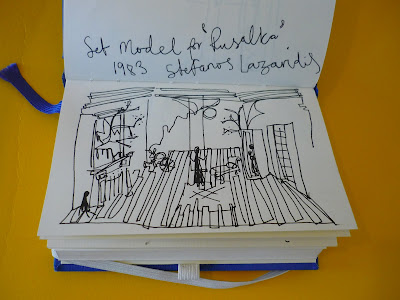 Set Model for "Rusalka"
1983 Stefanos Lazaridis